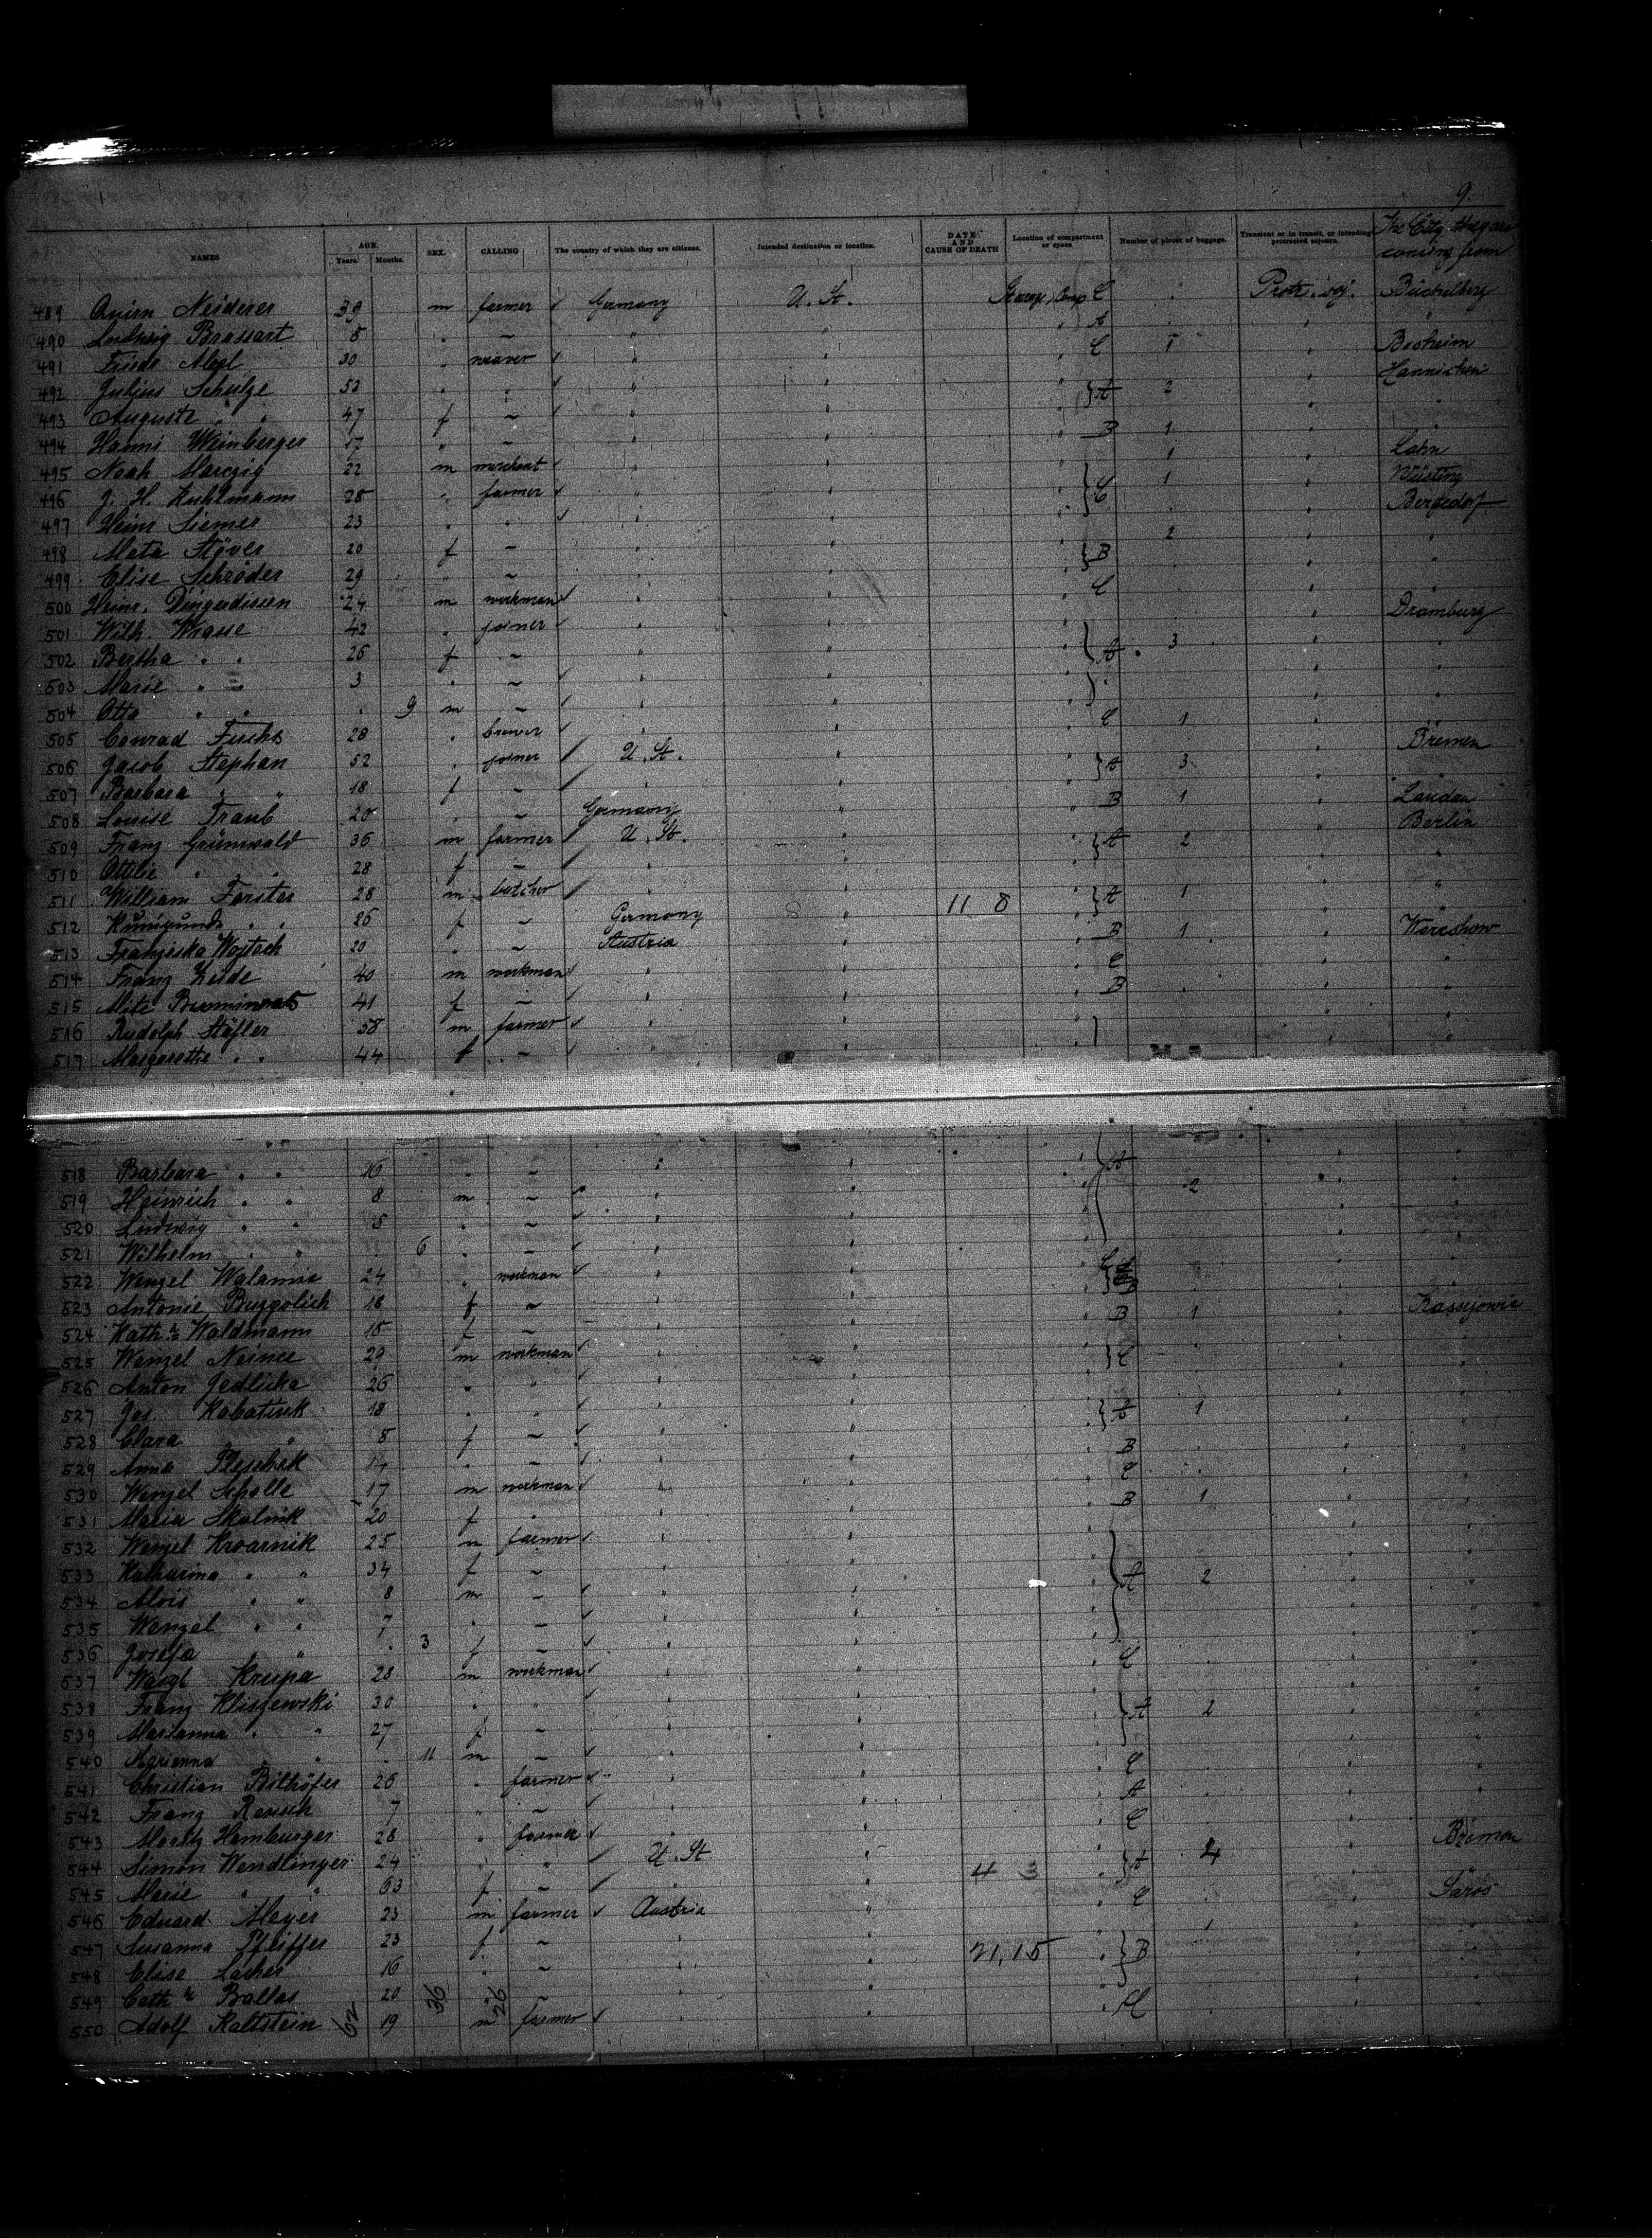 9.
NAMES AGE. Years. Months. SEX. CALLING The country of which they are citizens. Intended destination or location. DATE AND CAUSE OF DEATH Location of compartment or space Number of pieces of baggage. Transient or in transit, or intending protracted sojourn. The City they are coming from
489 Quirn Neiderer 39 m farmer Germany U. St. Steerage, Comp C Protr. soj. Büchelberg
490 Ludwig Brossart 8 " — " " A " "
491 Friedr Abel 30 " weaver " " C 1 " Besheim
492 Julius Schulze 53 " " " " A 2 " Hannichen
493 Auguste " " 47 f — " " " "
494 Hanni Weinberger 17 " — " " B 1 " "
495 Noah Marczig 22 m merchant " " 1 " Lahn
496 J. H. Kuhlmann 28 " farmer " " C 1 " Wüsting
497 Heinr Siemer 23 " " " " " Bergedorf
498 Meta Stöver 20 f — " " B 2 " "
499 Elise Schröder 29 " — " " " "
500 Heinr. Dingerdissen 24 m workman " " C " "
501 Wilh. Wrasse 42 " joiner " " " Dramburg
502 Bertha " " 26 f — " " A 3 " "
503 Marie " " 3 " — " " " "
504 Otto " " 9 m — " " " "
505 Conrad Fuchs 28 " brewer " " C 1 " "
506 Jacob Stephan 52 " joiner U. St. " A 3 " Bremen
507 Barbara " " 18 f — " " " "
508 Louise Traub 20 " — Germany " B 1 " Landau
509 Franz Grünwald 36 m farmer U. St. " A 2 " Berlin
510 Ottilie " " 28 f — " " " "
511 William Forster 28 m butcher " " A 1 " "
512 Kunigunde " " 26 f — Germany " 11 8 "
513 Franziska Wojtech 20 " — Austria " B 1 "
514 Franz Zeide 40 m workman " " C " "
515 41 f — " " B " "
516 Rudolph Stöfler 58 m farmer " " " "
517 Margarethe " " 44 f — " " " "
518 Barbara " " 16 " — " " A " "
519 Heinrich " " 8 m — " " 2 " "
520 Ludwig " " 5 " — " " " "
521 Wilhelm " " 6 " — " " " "
522 Wenzel 24 " workman " " " "
523 Antonie 18 f — " " B " Kassejowic
524 Kath. Waldmann 18 f — " " B 1 " "
525 Wenzel Neince 29 m workman " " C " "
526 Anton Jedlicka 26 " " " " " "
527 Jos. Kabatnik 18 " " " " A 1 " "
528 Clara " " 8 f — " " " "
529 Anna 14 " — " " B " "
530 Wenzel Scholle 17 m workman " " C " "
531 Maria Skalnik 20 f " " " B 1 " "
532 Wenzel Kroarnik 25 m farmer " " " "
533 Katharina " " 34 f — " " A 2 " "
534 Alois " " 8 m — " " " "
535 Wenzel " " 7 " — " " " "
536 Josefa " 3 f — " " " "
537 Krupa 28 m workman " " C " "
538 Franz Kliszewski 30 " " " " A 2 " "
539 Marianna " " 27 f — " " " "
540 Marianna " " 11 m — " " " "
541 Christian Bilhöfer 26 " farmer " " C " "
542 Franz Resisch 7 " — " " A " "
543 Moritz Hamburger 28 " farmer " " C " "
544 Simon Wendlinger 24 " " U. St " A 4 " Bremen
545 Marie " " 63 f — " " 4 3 " "
546 Eduard Meyer 23 m farmer Austria " C " Saros
547 Susanna Pfeiffer 23 f — " " 1 " "
548 Elise Lacher 16 " — " " 21,15 B " "
549 Cath. Ballas 20 " — " " " "
550 Adolf Kaltstein 19 m farmer " " " "
62 36 26